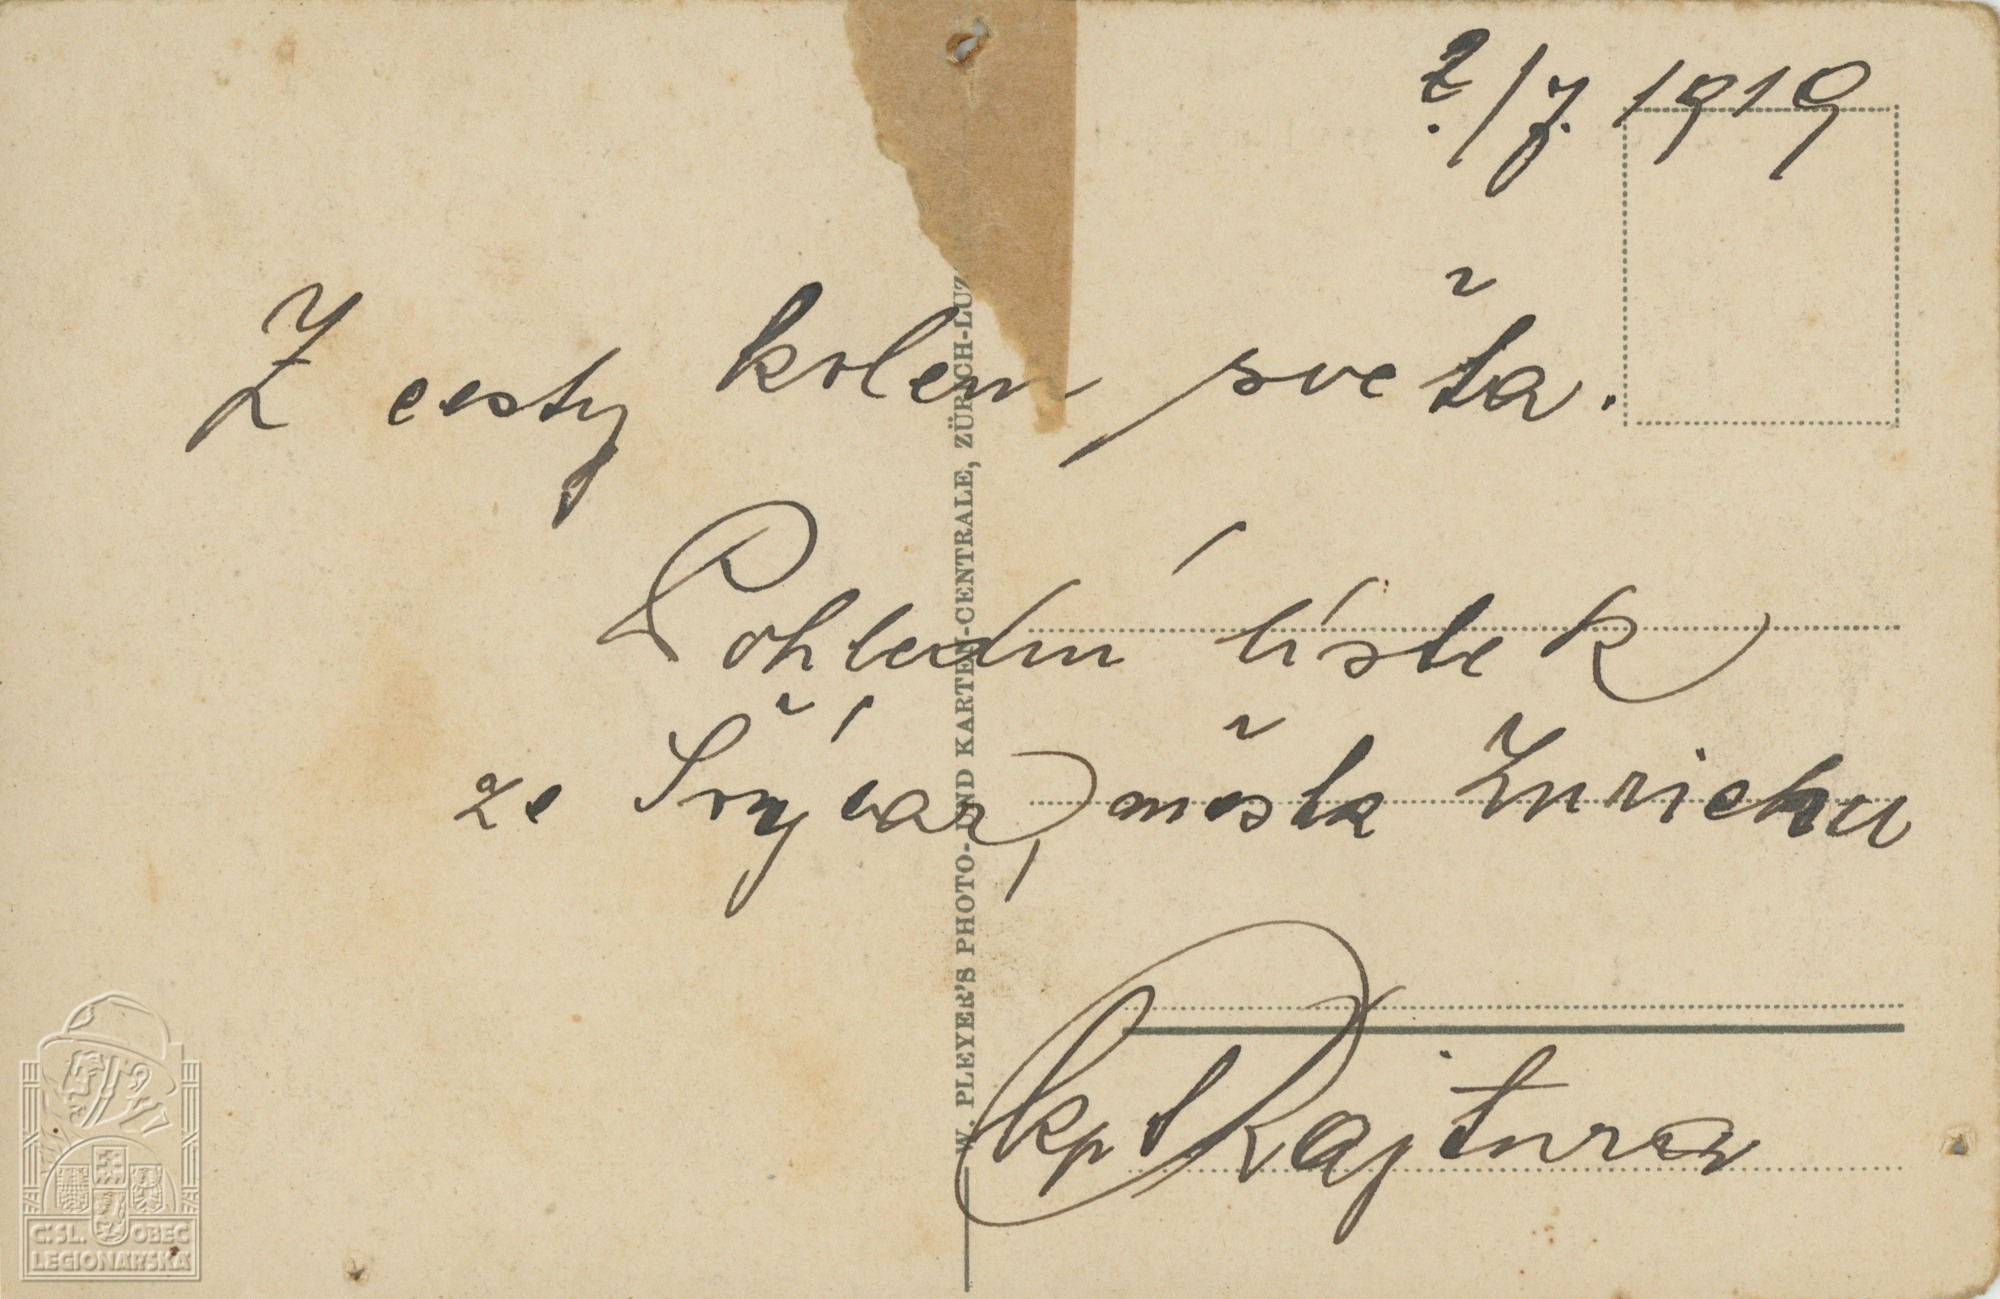 2./7. 1919
Z cesty kolem světa.
Pohlední lístek
ze Švýcar, města Zurichu
kpt Rajtura
W. PLEYER'S PHOTO- UND KARTEN-CENTRALE, ZÜRICH-LUZ
Č.SL. OBEC
LEGIONÁŘSKÁ